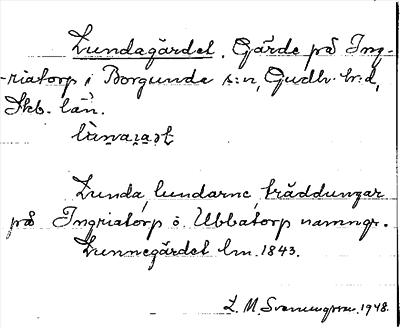 Lundagärdet. Gärde på Ing-
-riatorp i Borgunda s:n, Gudh. h:d,
Skb. län.
Lunda, lundarne, träddungar
på Ingriatorp o Ubbatorp namngr.
Lunnegärdet lm. 1843.
L. M. Svenungsson. 1948.